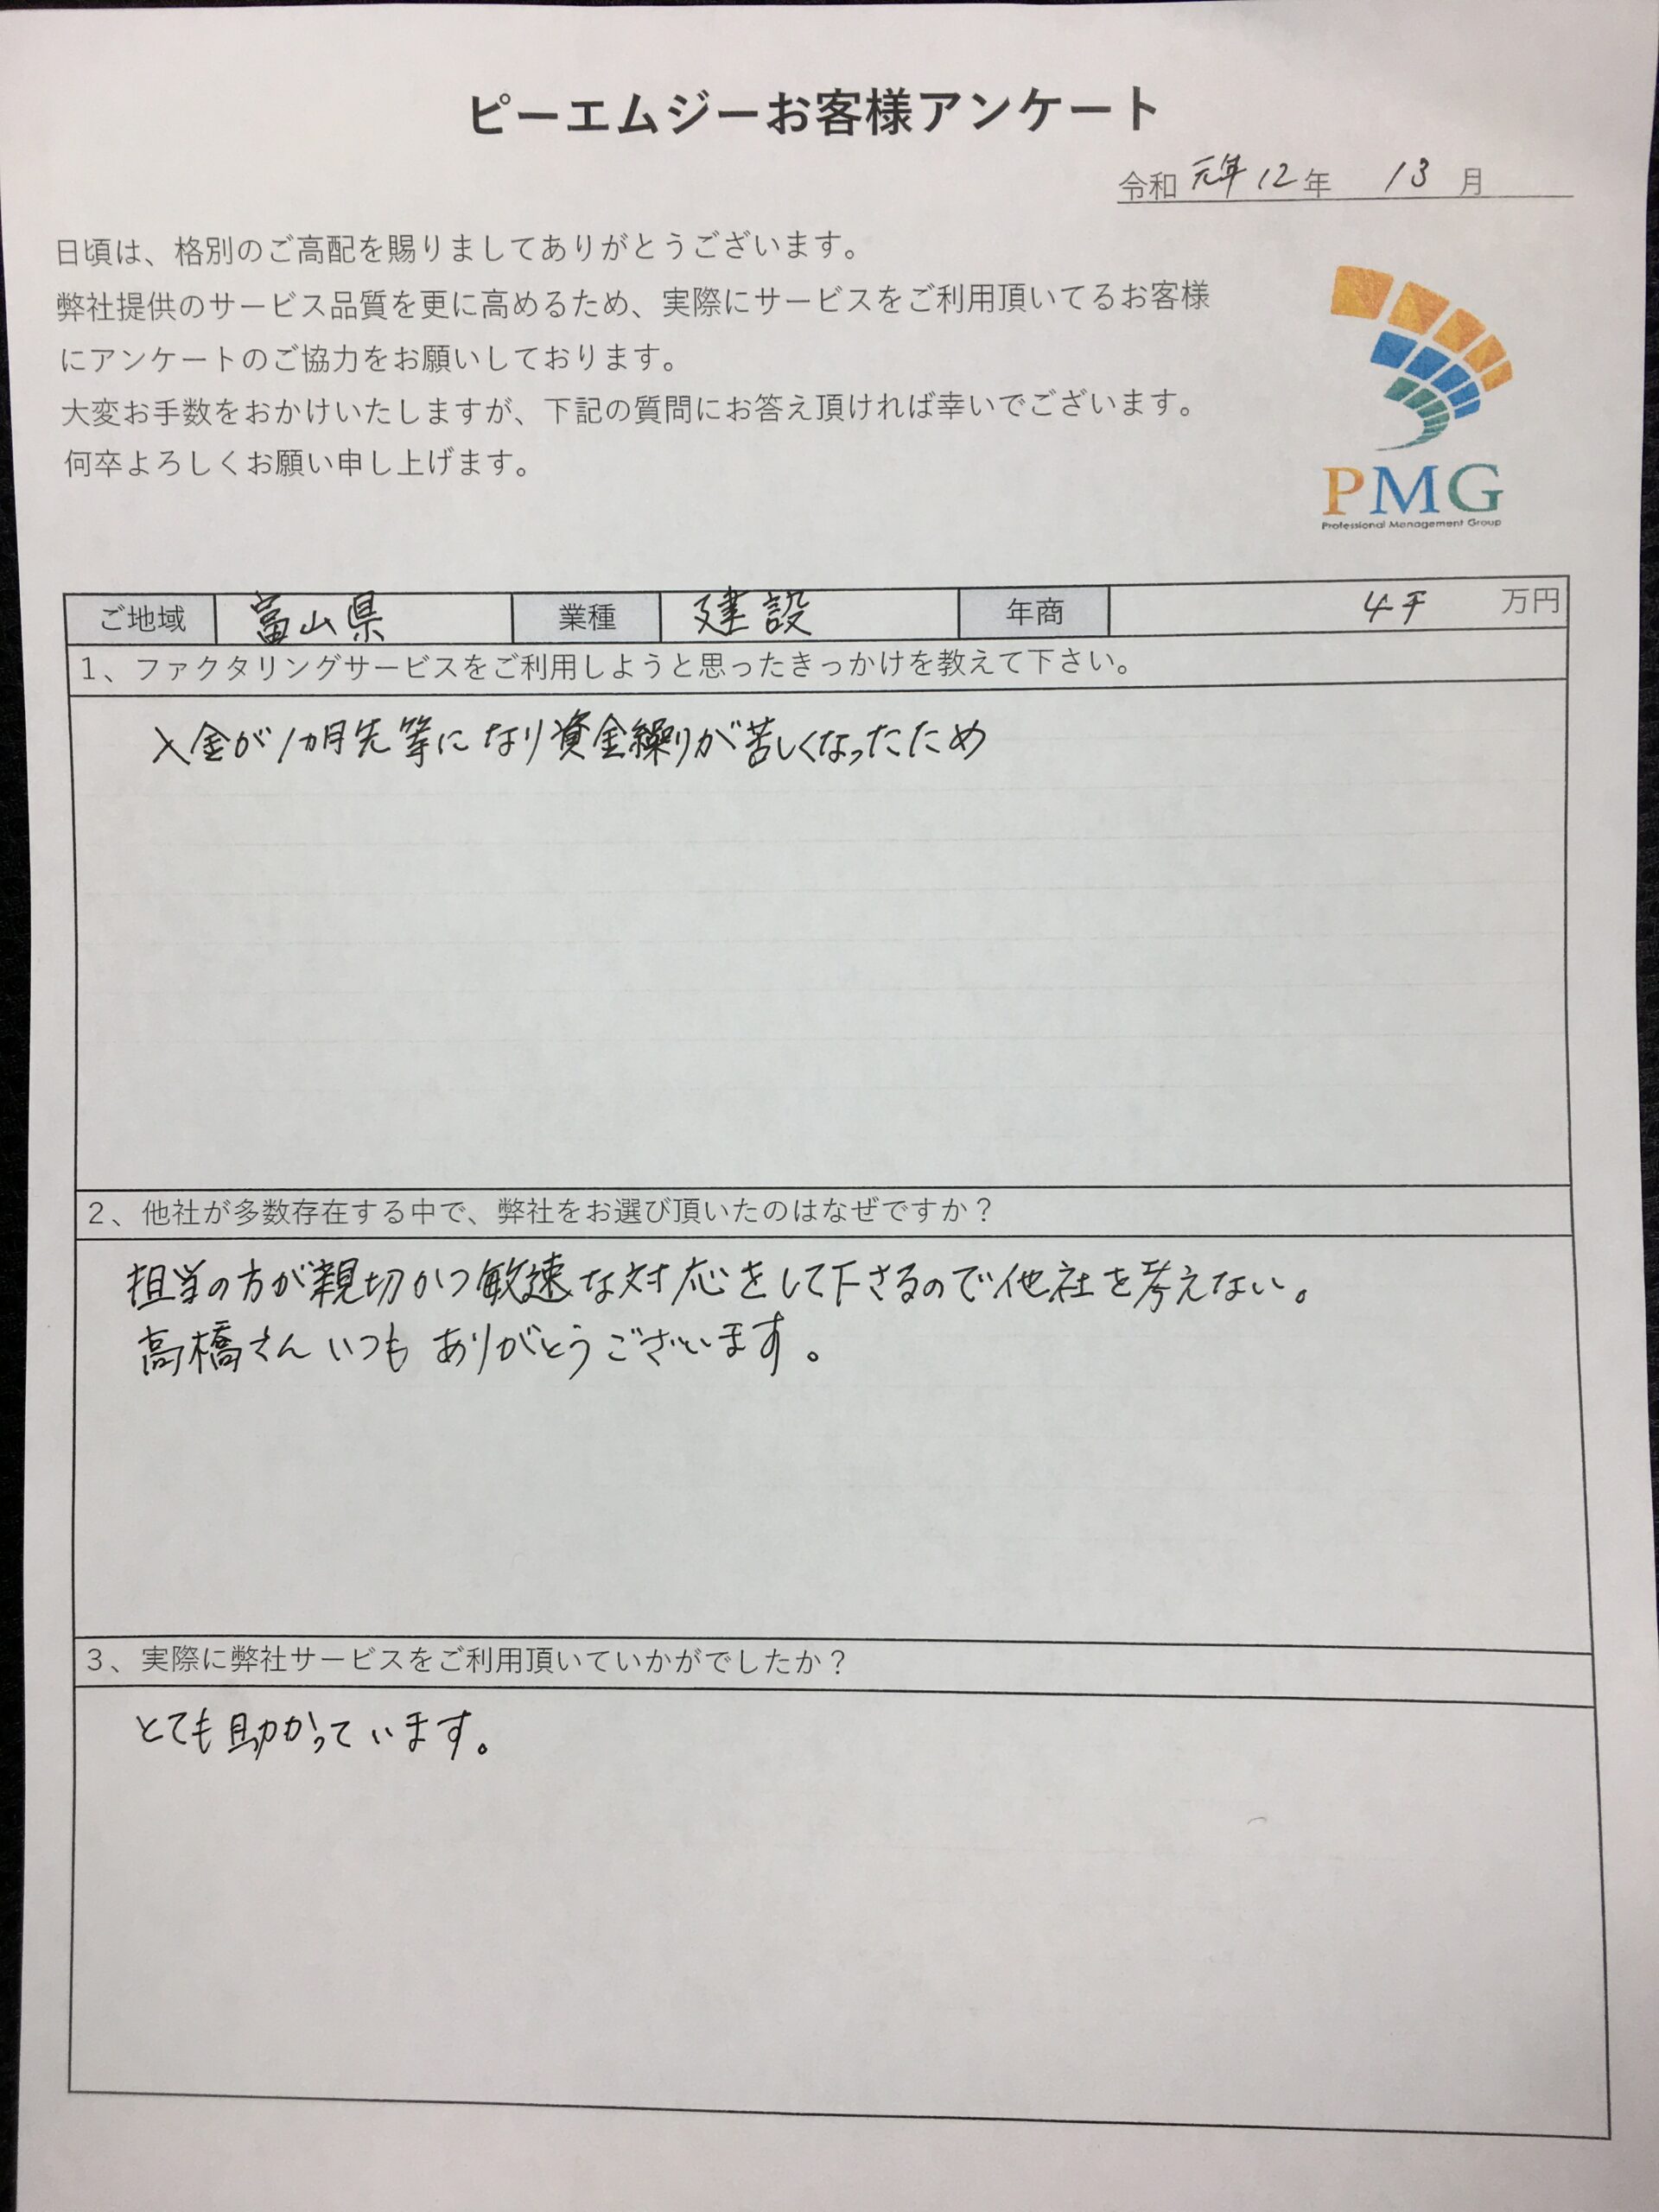 ピーエムジーお客様アンケート
令和 元年 12 年 13 月
日頃は、格別のご高配を賜りましてありがとうございます。
弊社提供のサービス品質を更に高めるため、実際にサービスをご利用頂いてるお客様
にアンケートのご協力をお願いしております。
大変お手数をおかけいたしますが、下記の質問にお答え頂ければ幸いでございます。
何卒よろしくお願い申し上げます。
PMG
Professional Management Group
ご地域 富山県 業種 建設 年商 4千 万円
1、ファクタリングサービスをご利用しようと思ったきっかけを教えて下さい。
入金が1カ月先等になり資金繰りが苦しくなったため
2、他社が多数存在する中で、弊社をお選び頂いたのはなぜですか？
担当の方が親切かつ敏速な対応をして下さるので他社を考えない。
高橋さんいつもありがとうございます。
3、実際に弊社サービスをご利用頂いていかがでしたか？
とても助かっています。